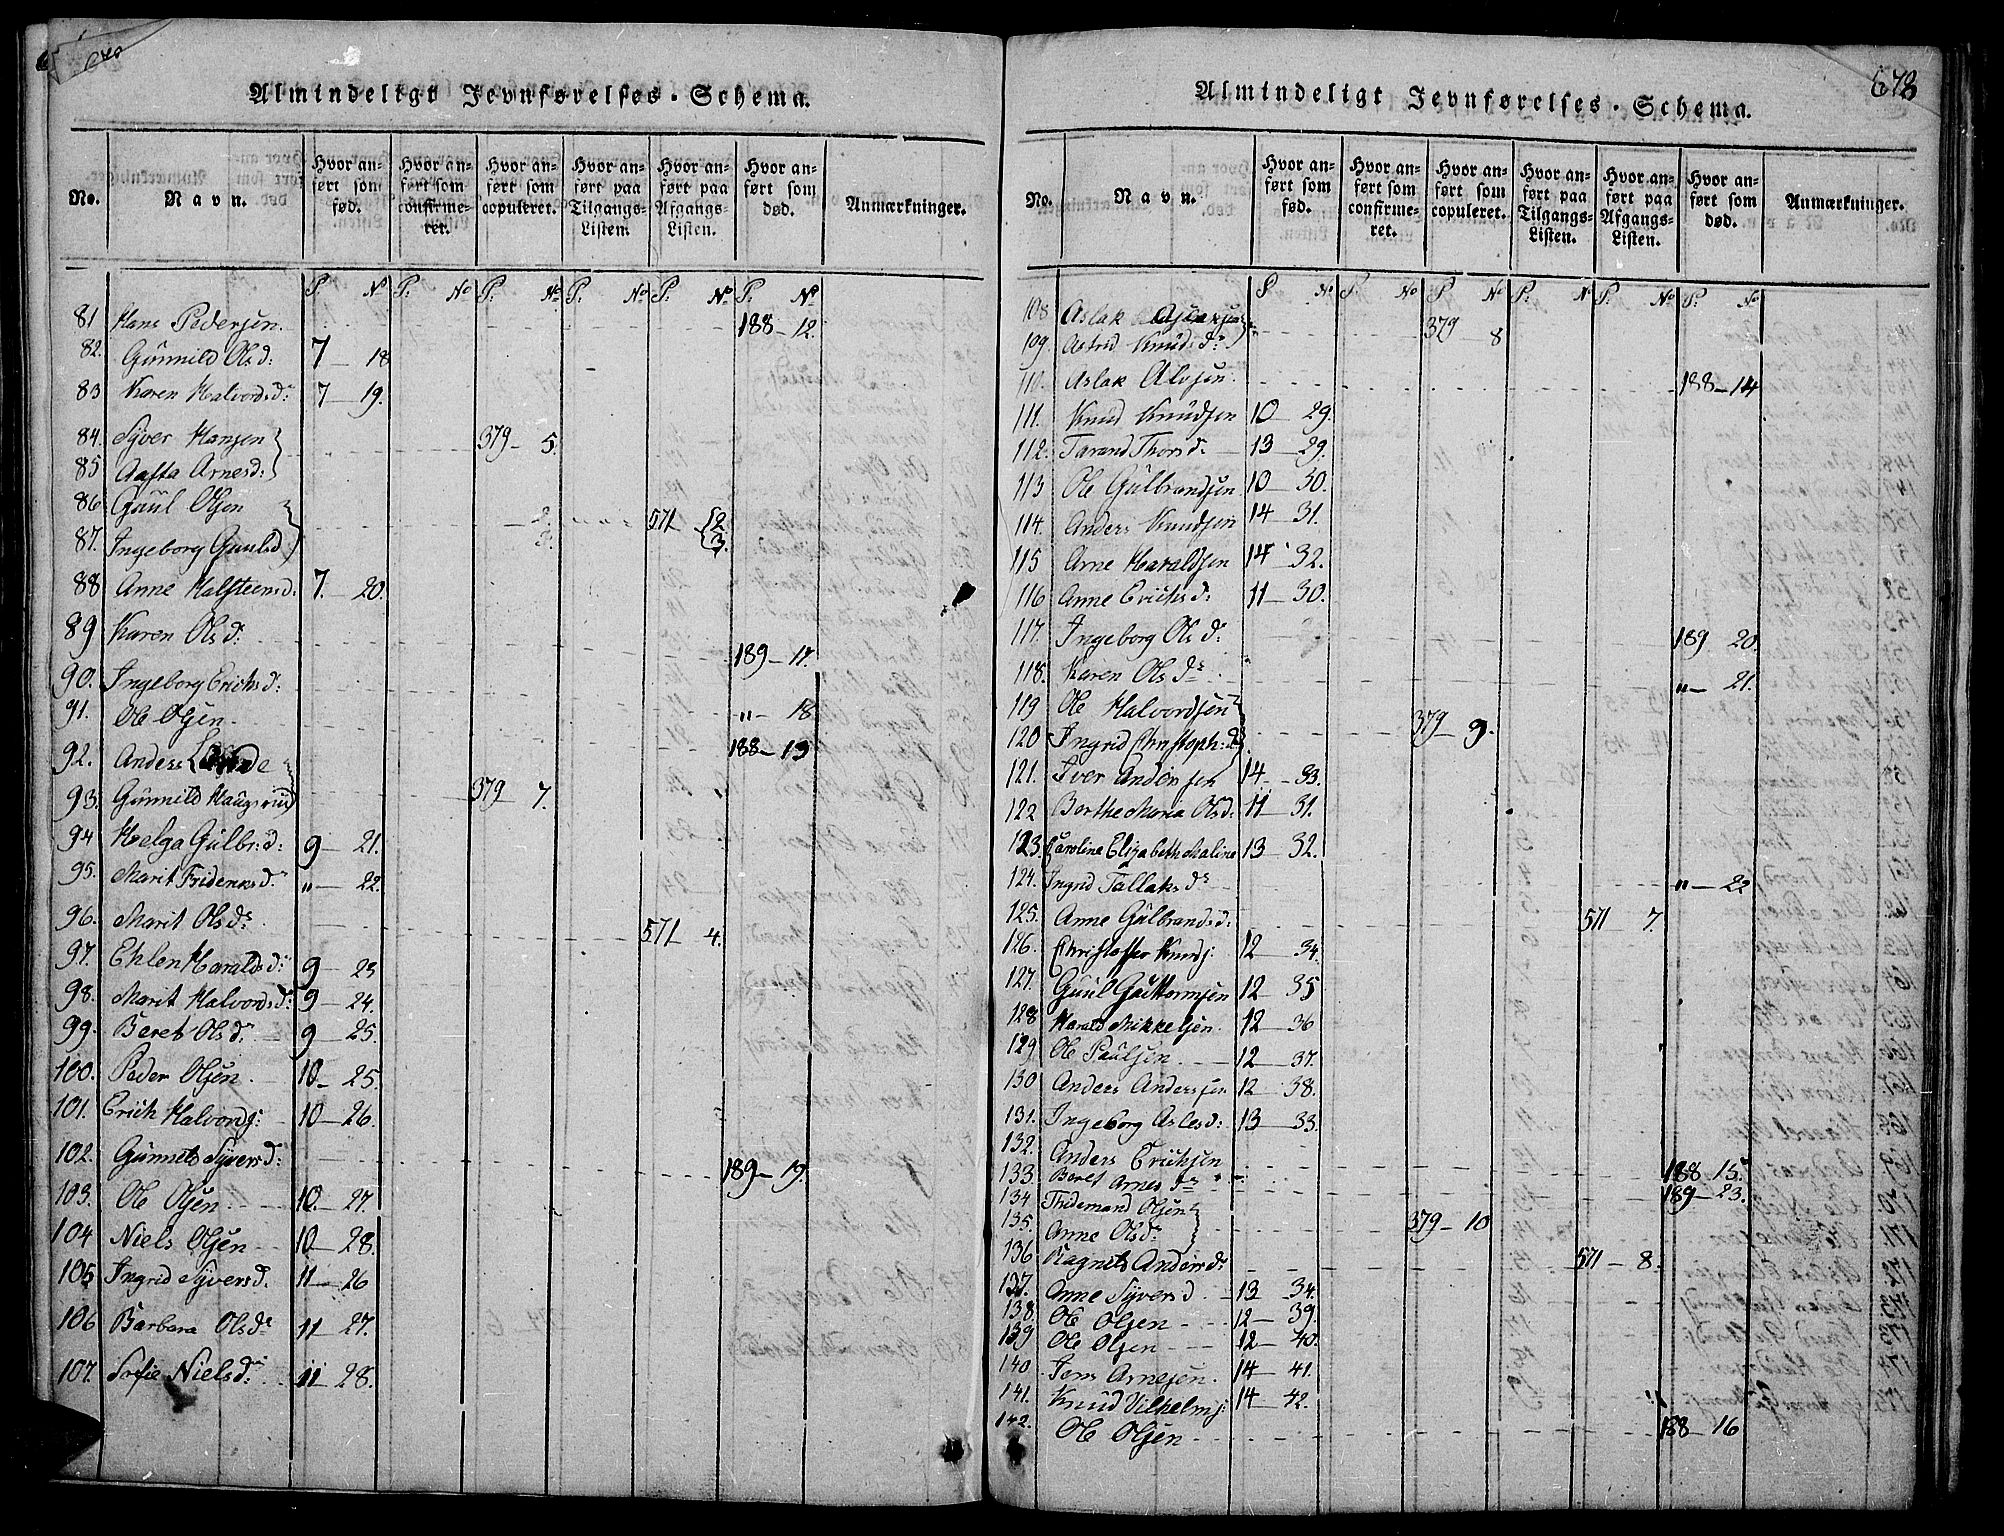 Almindeligt Jevnførelses-Schema.
No. Navn. Hvor anført som fød. Hvor anført som confirmeret. Hvor anført som copuleret. Hvor anført paa Tilgangs-Listen. Hvor anført paa Afgangs-Listen. Hvor anført som død. Anmærkninger.
P. No P. No P. No P. No P. No P. No
81 Hans Pedersen. 188-12.
82. Gunnild Olsd: 7-18
83 Karen Halvordsd: 7-19.
84. Syver Hansen 379-5.
85 Aafta Arnesd:
86 Guul Olsen 2. 571 2
87. Ingeborg Guulsd 3. 3.
88 Anne Halsteensd. 7.-20.
89 Karen Olsd: 189-17.
90. Ingeborg Erichsd: "-18
91. Ole Olsen. 188-13
92. Anders
93. Gunnild Haugsrud 379-7.
94 Helga Gulbrd: 9-21.
95. Marit Fridenksd. "-22.
96. Marit Olsd: 571-4.
97. Ehlen Haraldsd: 9-23
98. Marit Halvordsd: 9-24.
99. Beret Olsd. 9-25.
100. Peder Olsen. 10-25.
101. Erich Halvordsj: 10-26.
102. Gunnild Syversd: 189-19.
103. Ole Olsen. 10-27.
104 Niels Olsen 10-28.
105 Ingrid Syversd. 11-26
106 Barbara Olsd: 11-27.
107. Sofie Nielsd: 11-28.
678
Almindeligt Jevnførelses-Schema.
No. Navn. Hvor anført som fød. Hvor anført som confirmeret. Hvor anført som copuleret. Hvor anført paa Tilgangs-Listen. Hvor anført paa Afgangs-Listen. Hvor anført som død. Anmærkninger.
P No P. No P No P. N P. No P. No
108 Aslak 379 8
109. Astrid Knudsd:
110. Aslak Alvsen. 188-14
111. Knud Knudsen 10-29.
112. Tarand Thorsd. 13-29.
113 Ole Gulbrandsen 10-30.
114. Anders Knudsen 14-31.
115 Arne Haraldsen 14-32.
116 Anne Erichsd: 11-30.
117. Ingeborg Olsd: 189 20.
118. Karen Olsd: "-21.
119 Ole Halvordsen 379-9.
120 Ingrid Christoph: d
121. Iver Andersen 14-33.
122 Berthe Maria Olsd: 11-31.
123. Carolina Elizabeth Malina 13-32.
124. Ingrid Tallaksd: "-22
125. Anne Gulbrandsd: 571 7.
126. Christoffer Knudsj: 12-34.
127. Guul Guttormsen 12-35
128 Harald Mikkelsen. 12-36
129 Ole Paulsen. 12-37.
130 Anders Anderssen 12-38.
131. Ingeborg Aslesd: 13-33.
132. Anders Erichsen 188 15.
133. Beret Arnesd: 189-23.
134 Thidemand Olsen 379-10
135. Anne Olsd:
136 Ragnild Andersd: 571-8.
137. Anne Syversd 13-34.
138. Ole Olsen 12-39.
139 Ole Olsen 12-40.
140 Jens Arnesen. 14-41.
141. Knud Vilhelmsj: 14-42.
142. Ole Olsen 188-16